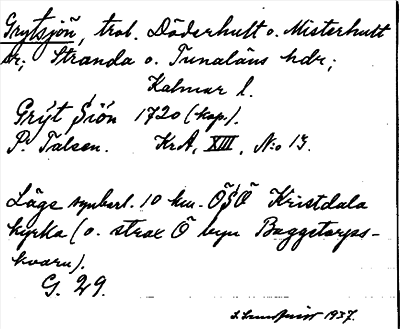 Grytsjön, trol. Döderhult o. Misterhult
sr; Stranda o. Tunaläns hdr;
Kalmar l.
Grÿt Siön 1720 (kop.).
P. Talsen. KrA, XIII, N:o 13.
Lägs synbarl. 10 km. ÖSÖ Kristdala
kyrka (o. strax Ö byn Baggetorps-
kvarn).
G. 29.
1937.